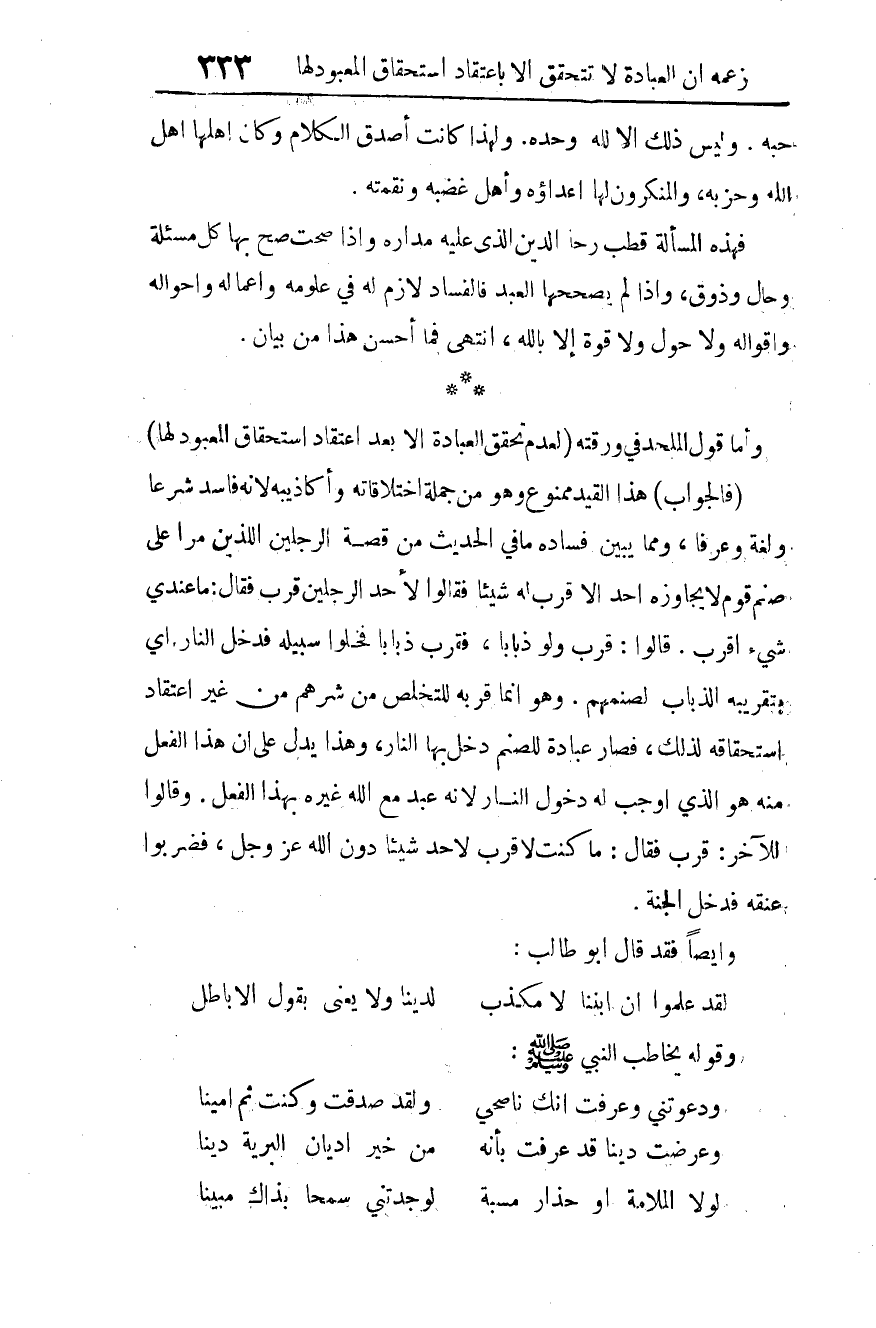 زعمه ان العبادة لا تتحقق الا باعتقاد استحقاق المعبود لها ٣٣٣
حبه . وليس ذلك الا لله وحده. ولهذا كانت أصدق الكلام وكان اهلها اهل
الله وحزبه، والمنكرون لها اعداؤه وأهل غضبه ونقمته .
فهذه المسألة قطب رحا الدين الذى عليه مداره واذا صحت صح بها كل مسئلة
وحال وذوق، واذا لم يصححها العبد فالفساد لازم له في علومه واعماله واحواله
واقواله ولا حول ولا قوة إلا بالله ، انتهى فما أحسن هذا من بيان .
***
وأما قول الملحد في ورقته (لعدم تحقق العبادة الا بعد اعتقاد استحقاق المعبود لها)
(فالجواب) هذا القيد ممنوع وهو من جملة اختلاقاته وأكاذيبه لانه فاسد شرعا
ولغة وعرفا ، ومما يبين فساده مافي الحديث من قصة الرجلين اللذين مرا على
صنم قوم لا يجاوزه احد الا قرب له شيئا فقالوا لأحد الرجلين قرب فقال: ما عندي
شيء اقرب . قالوا : قرب ولو ذبابا ، فقرب ذبابا فخلوا سبيله فدخل النار، اي
بتقريبه الذباب لصنمهم . وهو انما قربه للتخلص من شرهم من غير اعتقاد
استحقاقه لذلك، فصار عبادة للصنم دخل بها النار، وهذا يدل على ان هذا الفعل
منه هو الذي اوجب له دخول النار لانه عبد مع الله غيره بهذا الفعل . وقالوا
للآخر : قرب فقال : ما كنت لاقرب لاحد شيئا دون الله عز وجل ، فضربوا
عنقه فدخل الجنة .
وايضاً فقد قال ابو طالب :
لقد علموا ان ابننا لا مكذب لدينا ولا يعنى بقول الاباطل
وقوله يخاطب النبي ﷺ :
ودعوتني وعرفت انك ناصحي ولقد صدقت وكنت ثم امينا
وعرضت دينا قد عرفت بأنه من خير اديان البرية دينا
لولا الملامة او حذار مسبة لوجدتني سمحا بذاك مبينا